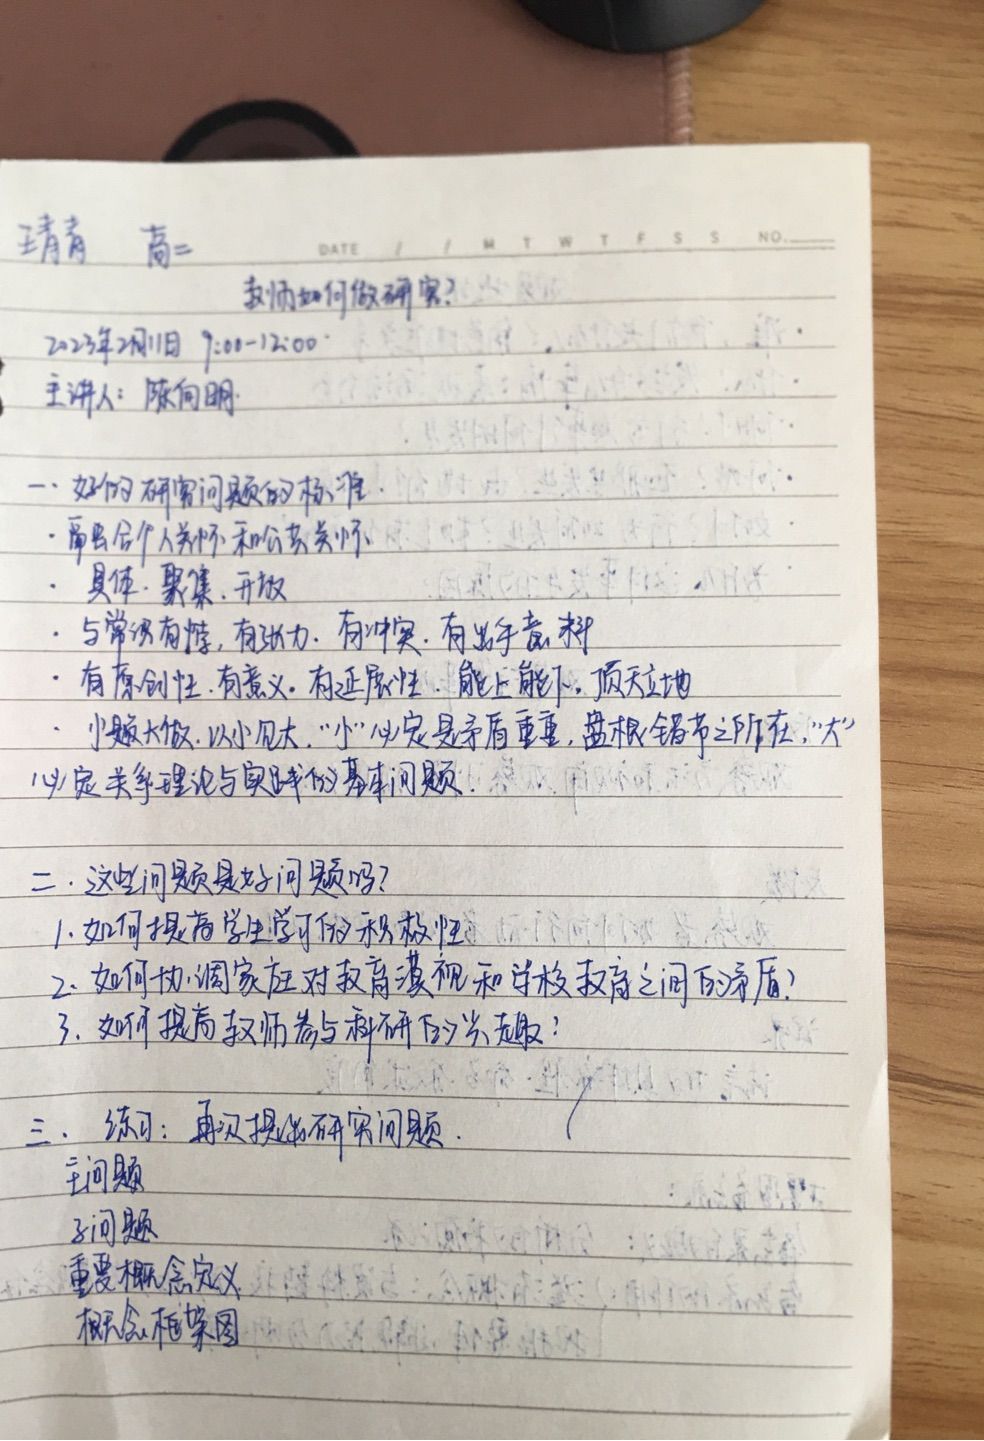 王青青 高二
DATE / / M T W T F S S NO.
教师如何做研究?
2023年2月11日 9:00-12:00
主讲人: 陈向明
一、好的研究问题的标准
· 结合个人关怀和公共关怀
· 具体、聚集、开放
· 与常识有悖, 有张力、有冲突、有出乎意料
· 有原创性、有意义、有延展性、能上能下、顶天立地
· 小题大做、以小见大, "小"必定是矛盾重重, 盘根错节之所在, "大"
必定关乎理论与实践的基本问题.
二、这些问题是好问题吗?
1. 如何提高学生学习的积极性
2. 如何协调家庭对教育漠视和学校教育之间的矛盾?
3. 如何提高教师参与科研的兴趣?
三、练习: 再次提出研究问题.
主问题
子问题
重要概念定义
概念框架图